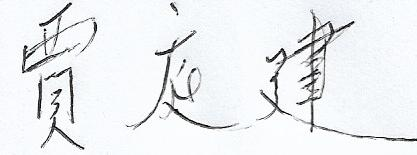 賈庭建